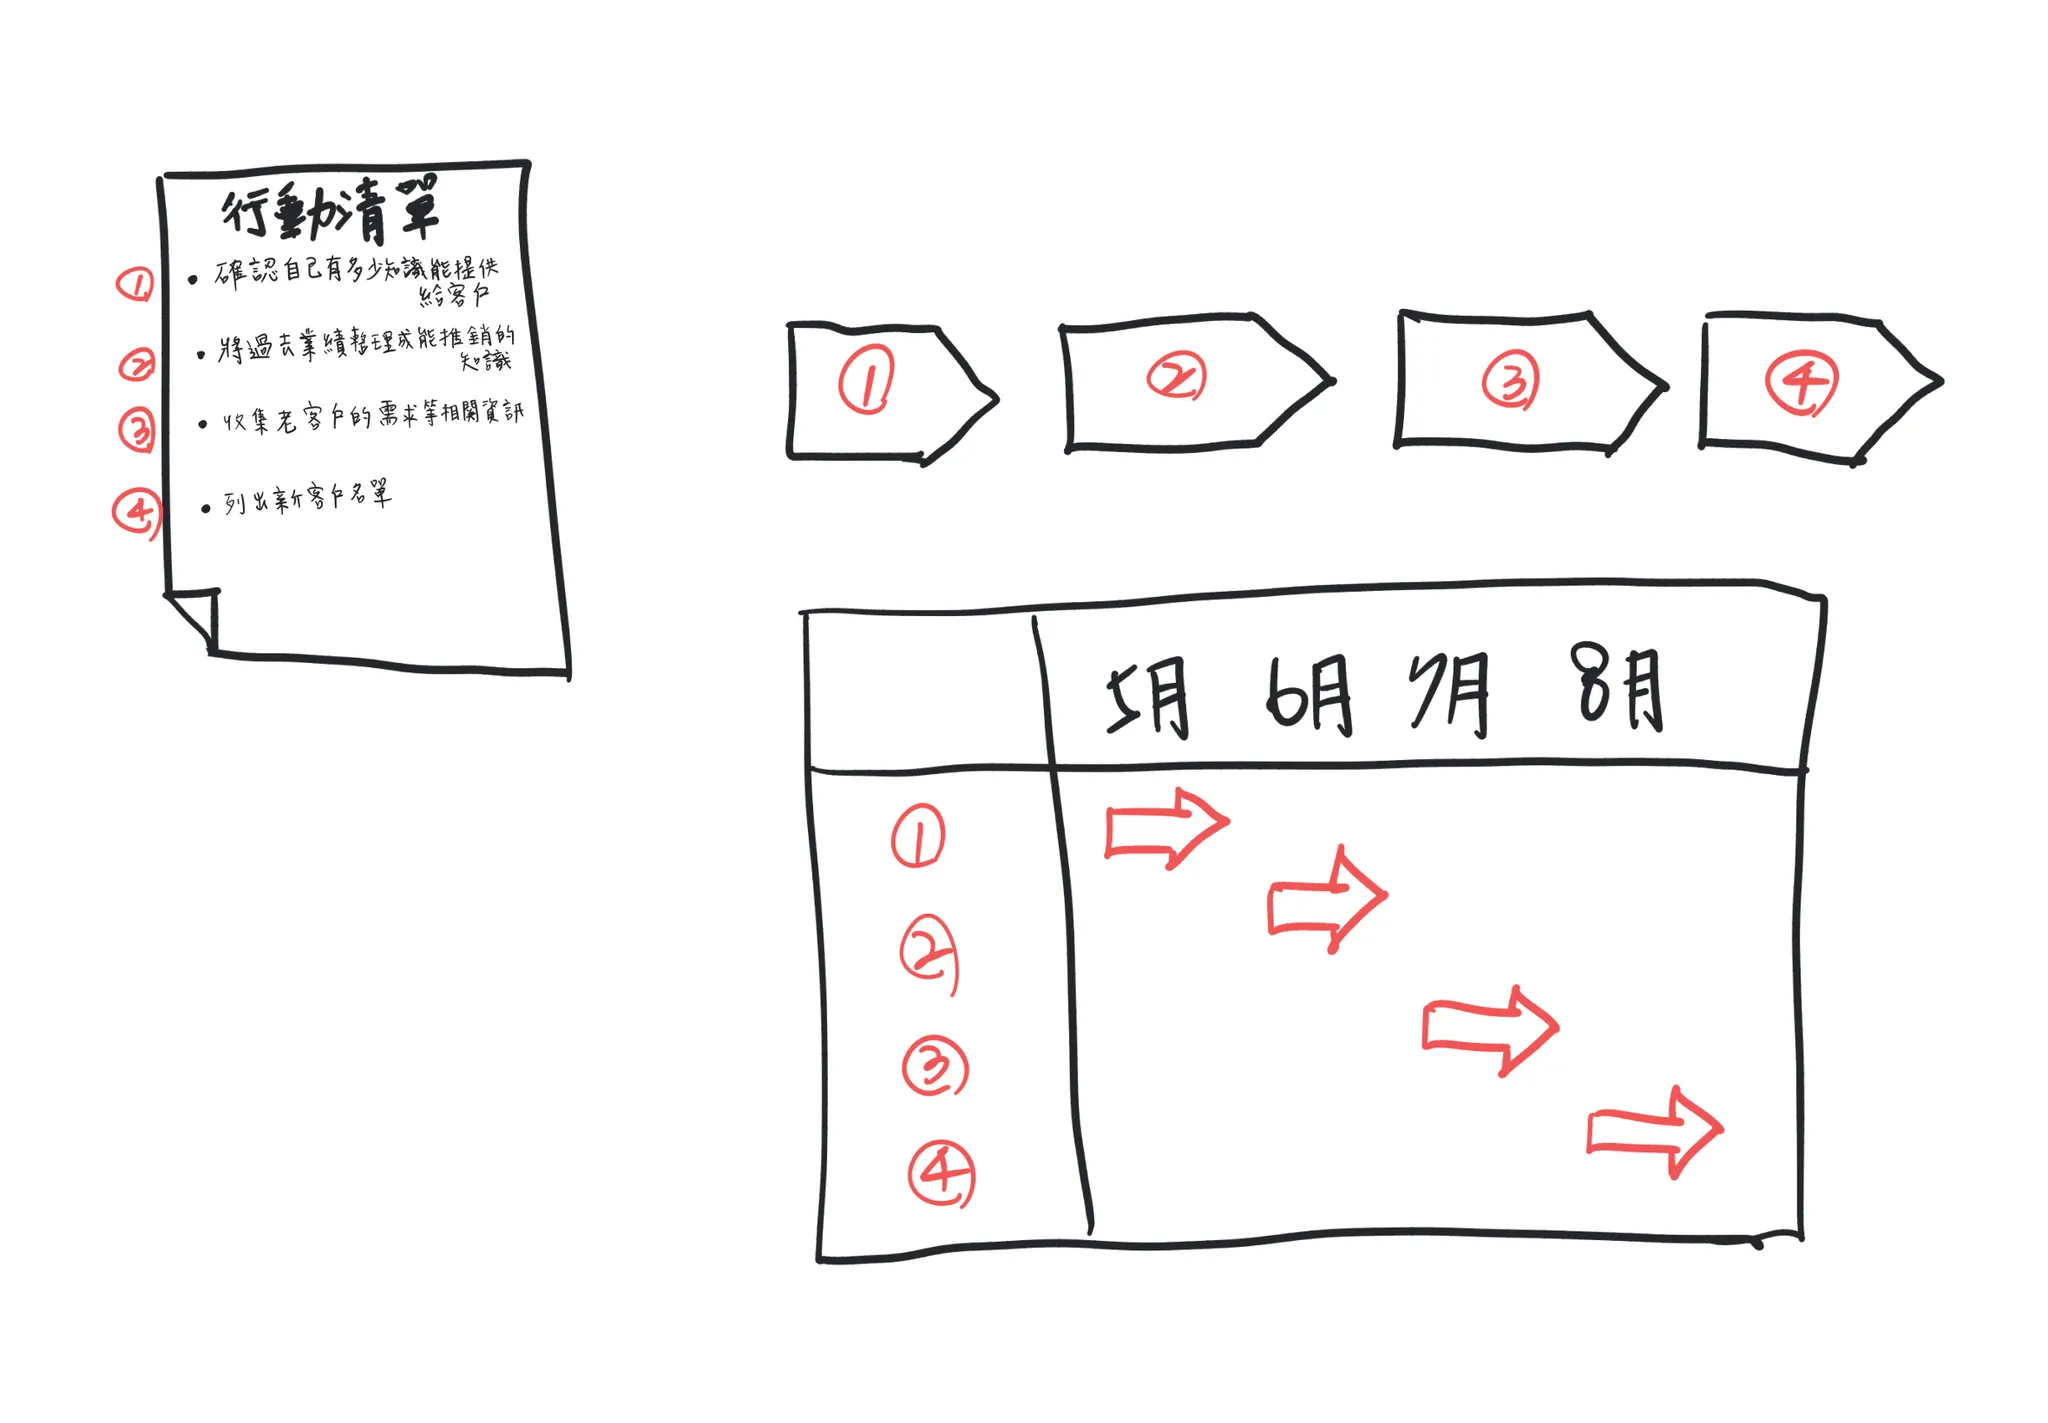 行動清單
① • 確認自己有多少知識能提供
給客戶
② • 將過去業績整理成能推銷的
知識
③ • 收集老客戶的需求等相關資訊
④ • 列出新客戶名單
① ② ③ ④
5月 6月 7月 8月
①
②
③
④